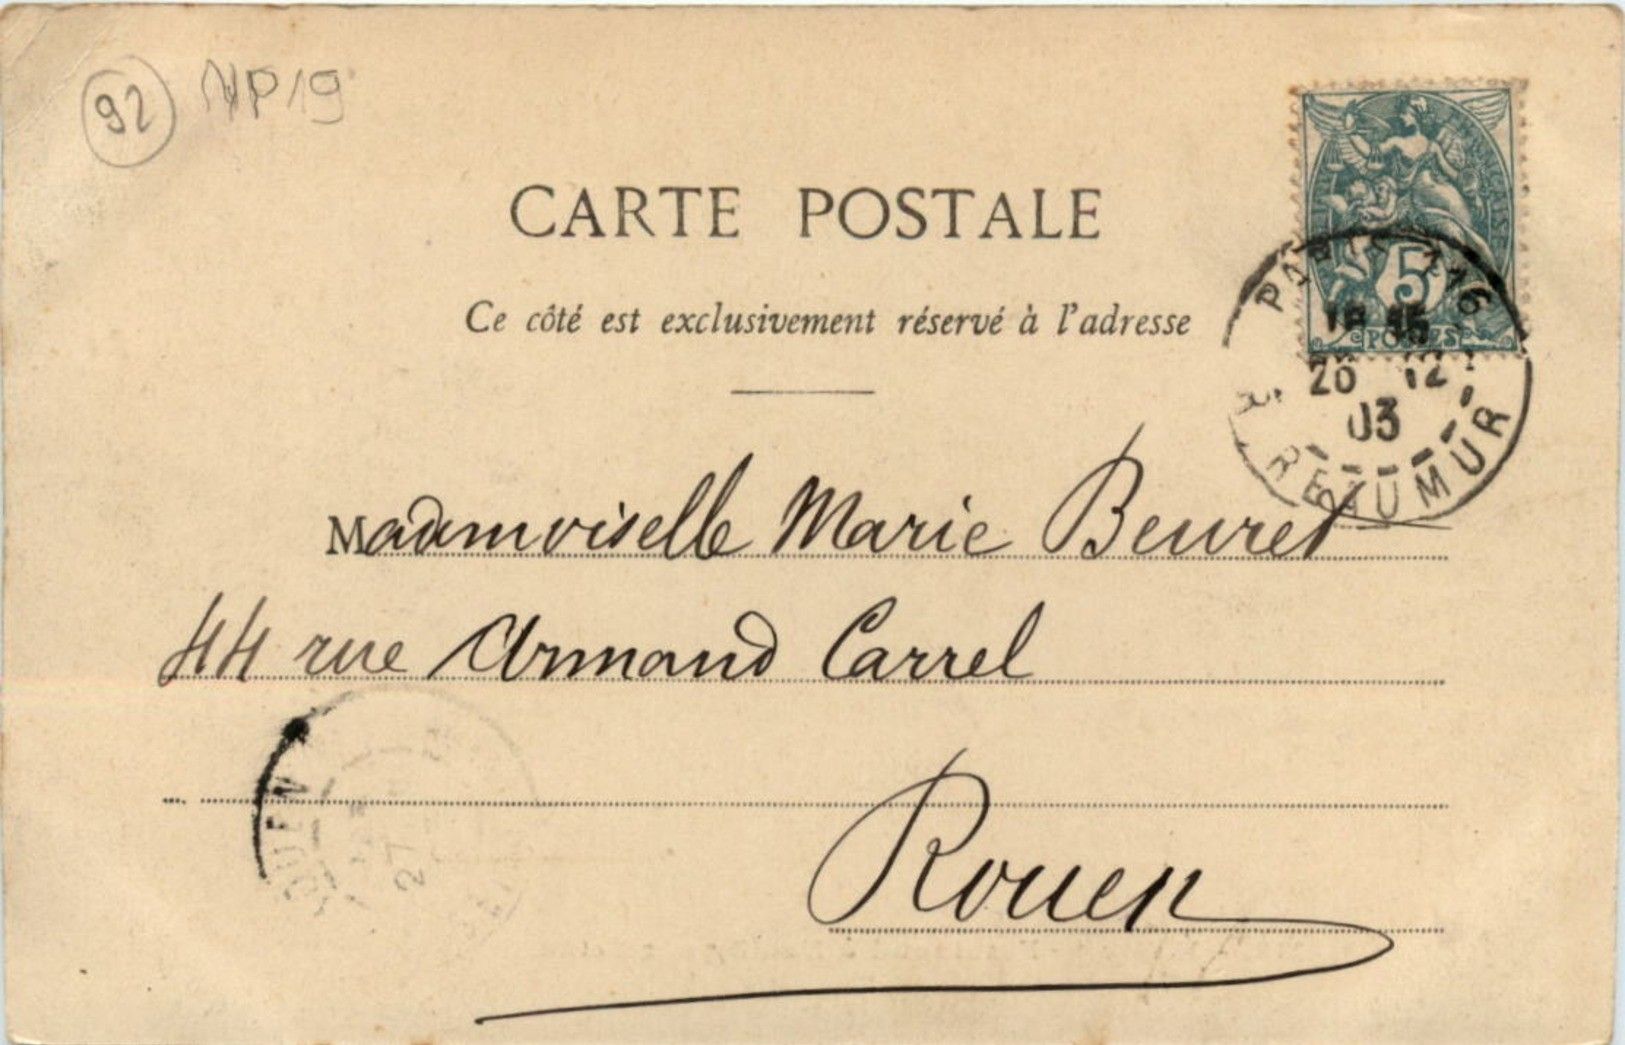 92 NP19
CARTE POSTALE
Ce côté est exclusivement réservé à l'adresse
5
POSTES
PARIS 116
18 45
26 12
03
R. REAUMUR
Mademoiselle Marie Beuret
44 rue Armand Carrel
Rouen
ROUEN
27